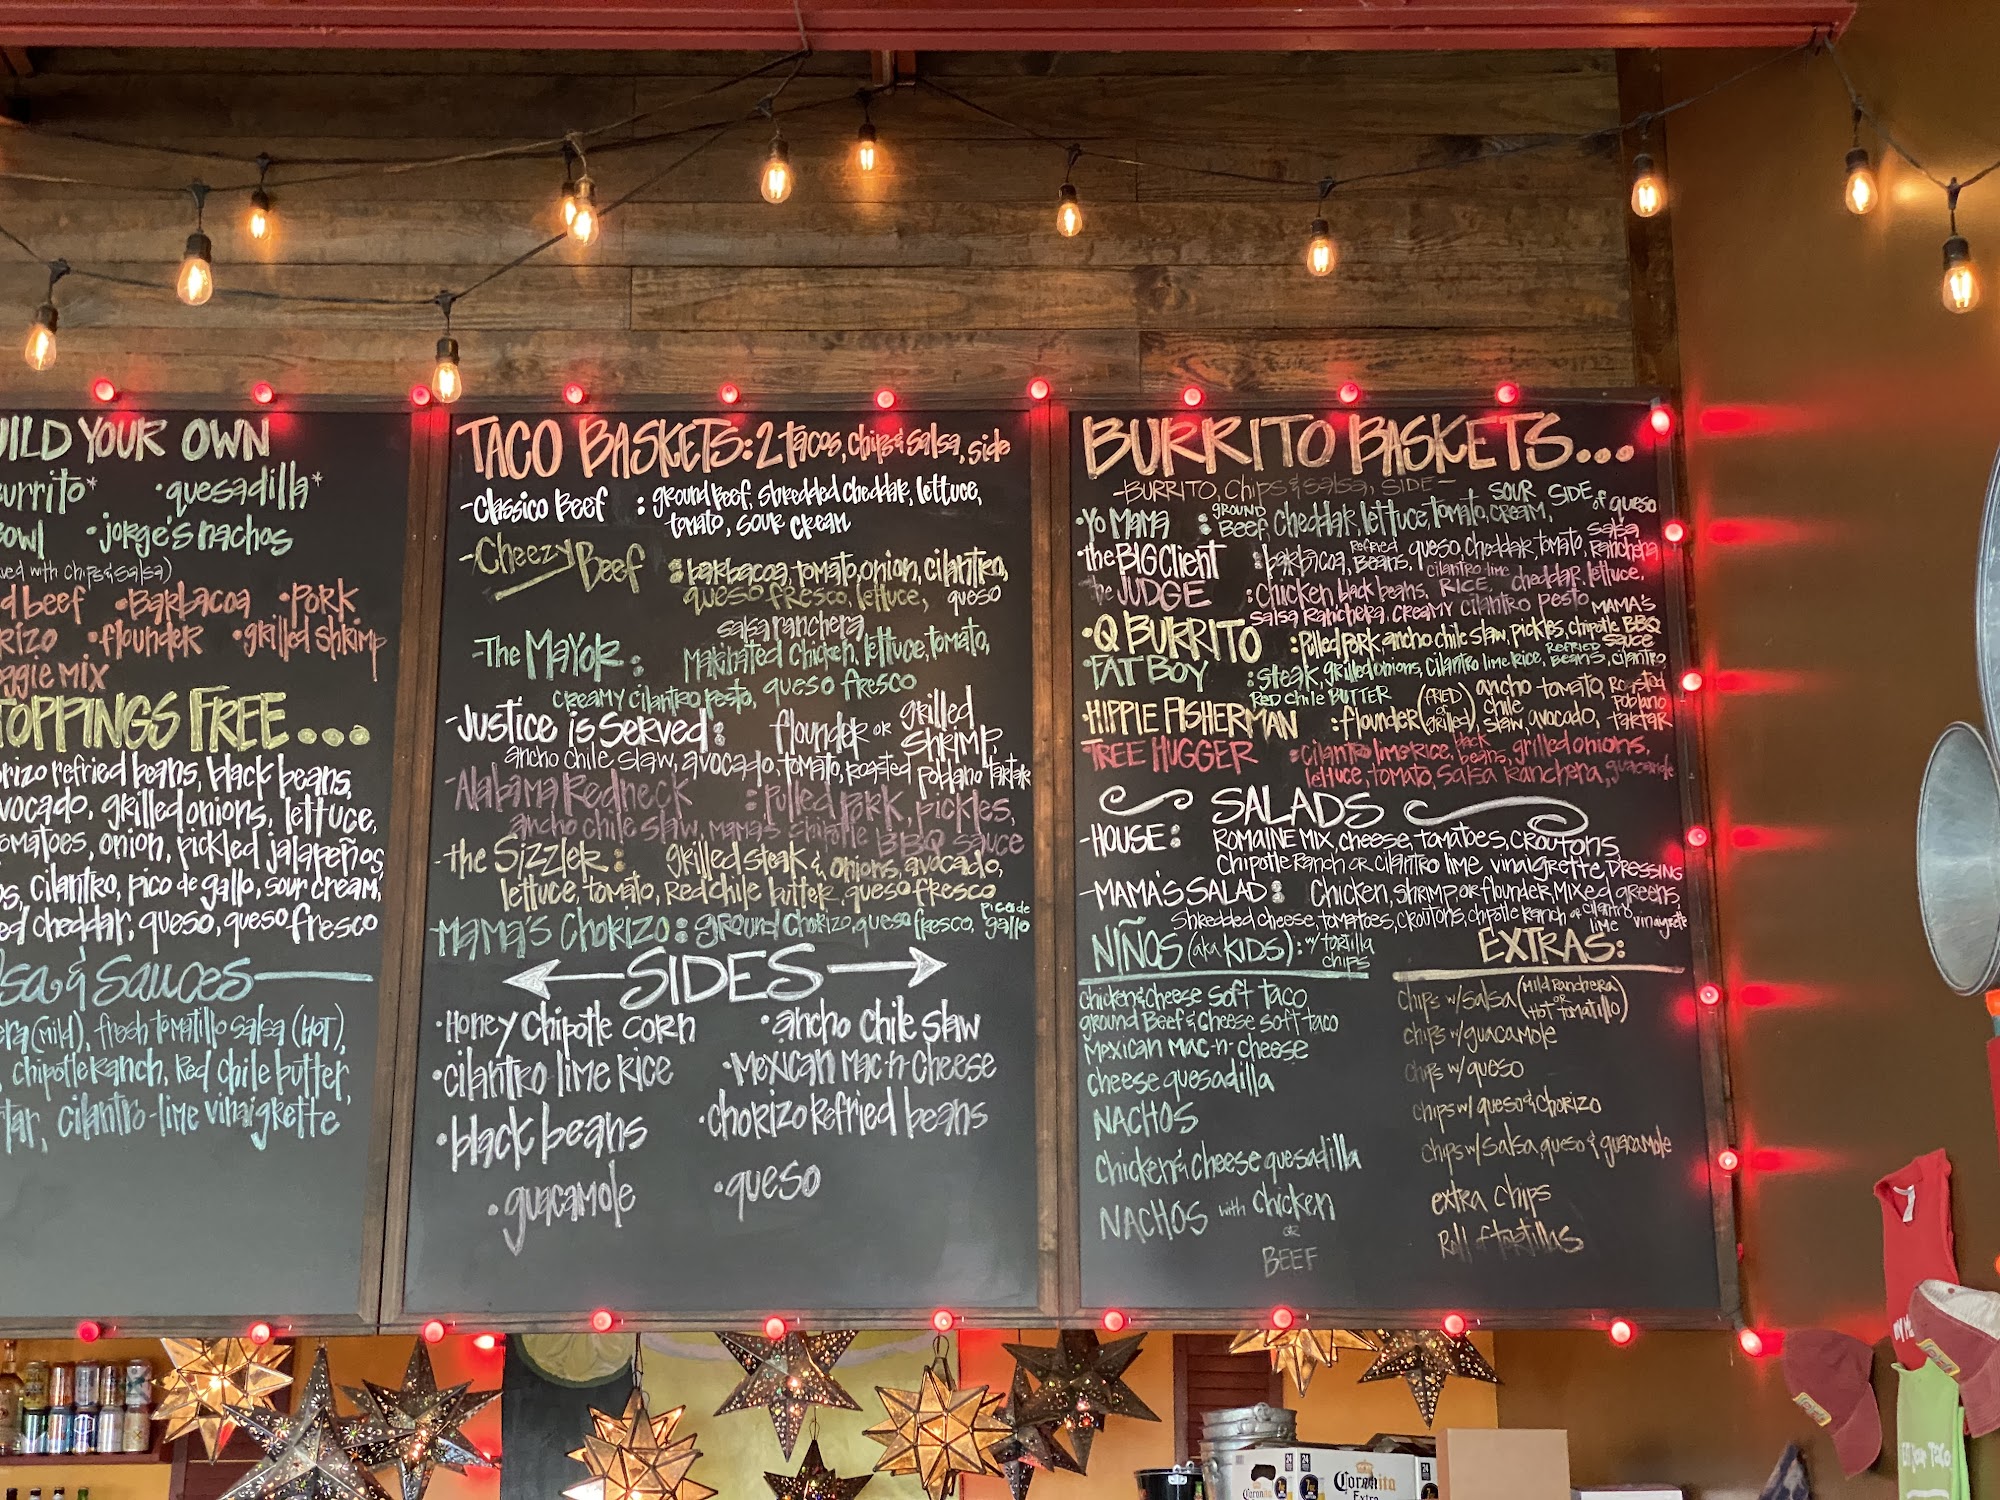 ILD YOUR OWN
urrito* •quesadilla*
owl •jorge's nachos
ved with chips & salsa)
d beef •Barbacoa •Pork
rizo •flounder •grilled shrimp
ggie mix
TOPPINGS FREE...
rizo refried beans, black beans,
vocado, grilled onions, lettuce,
omatoes, onion, pickled jalapeños,
os, cilantro, pico de gallo, sour cream,
ed cheddar, queso, queso fresco
lsa & Sauces
era (mild), fresh tomatillo salsa (HOT),
, chipotle ranch, Red chile butter,
rtar, cilantro-lime vinaigrette
TACO BASKETS: 2 tacos, chips & salsa, side
-Classico Beef : ground beef, shredded cheddar, lettuce,
tomato, sour cream
-Cheezy Beef : barbacoa, tomato, onion, cilantro,
queso fresco, lettuce, queso
salsa ranchera
-The Mayor : Marinated chicken, lettuce, tomato,
creamy cilantro pesto, queso fresco
-Justice is Served : flounder or grilled shrimp,
ancho chile slaw, avocado, tomato, roasted poblano tartar
-Alabama Redneck : Pulled Pork, pickles,
ancho chile slaw, mama's chipotle BBQ sauce
-the Sizzler : grilled steak & onions, avocado,
lettuce, tomato, Red chile butter, queso fresco
-Mama's Chorizo : ground chorizo, queso fresco, pico de gallo
SIDES
•Honey chipotle corn •ancho chile slaw
•cilantro lime rice •Mexican Mac-n-Cheese
•black beans •chorizo refried beans
•guacamole •queso
BURRITO BASKETS...
-BURRITO, chips & salsa, SIDE-
•Yo Mama : GROUND Beef, cheddar, lettuce, tomato, SOUR cream, SIDE of queso
•the BIG Client : barbacoa, refried beans, queso, cheddar, tomato, salsa ranchera
the JUDGE : chicken, black beans, cilantro lime RICE, cheddar, lettuce,
salsa ranchera, creamy cilantro pesto
•Q BURRITO : Pulled pork, ancho chile slaw, pickles, MAMA'S chipotle BBQ sauce
•FAT BOY : steak, grilled onions, cilantro lime rice, REFRIED beans, cilantro
Red chile BUTTER
•HIPPIE FISHERMAN : flounder (FRIED or grilled) ancho chile slaw, tomato, avocado, Roasted poblano tartar
TREE HUGGER : cilantro lime rice, black beans, grilled onions,
lettuce, tomato, salsa ranchera, guacamole
SALADS
-HOUSE : ROMAINE MIX, cheese, tomatoes, croutons,
chipotle Ranch or cilantro lime vinaigrette, DRESSING
-MAMA'S SALAD : Chicken, shrimp, or flounder, Mixed greens,
shredded cheese, tomatoes, croutons, chipotle ranch or cilantro lime vinaigrette
NIÑOS (aka KIDS): w/ tortilla chips
chicken & cheese soft taco
ground Beef & cheese soft taco
Mexican mac-n-cheese
cheese quesadilla
NACHOS
chicken & cheese quesadilla
NACHOS with chicken
or
BEEF
EXTRAS:
chips w/ salsa (Mild Ranchera or Hot tomatillo)
chips w/ guacamole
chips w/ queso
chips w/ queso & chorizo
chips w/ salsa, queso & guacamole
extra chips
Roll of tortillas
Coronita
Extra